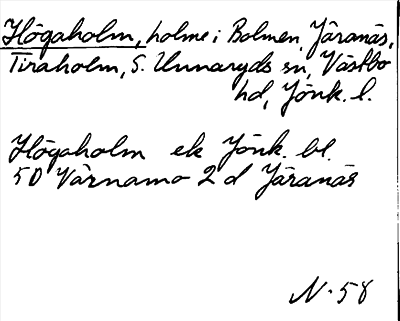 Högaholm, holme i Bolmen, Järanäs,
Tiraholm, S. Unnaryds sn, Västbo
hd, Jönk. l.
Högaholm ek Jönk. bl.
50 Värnamo 2 d Järanäs
N. 58